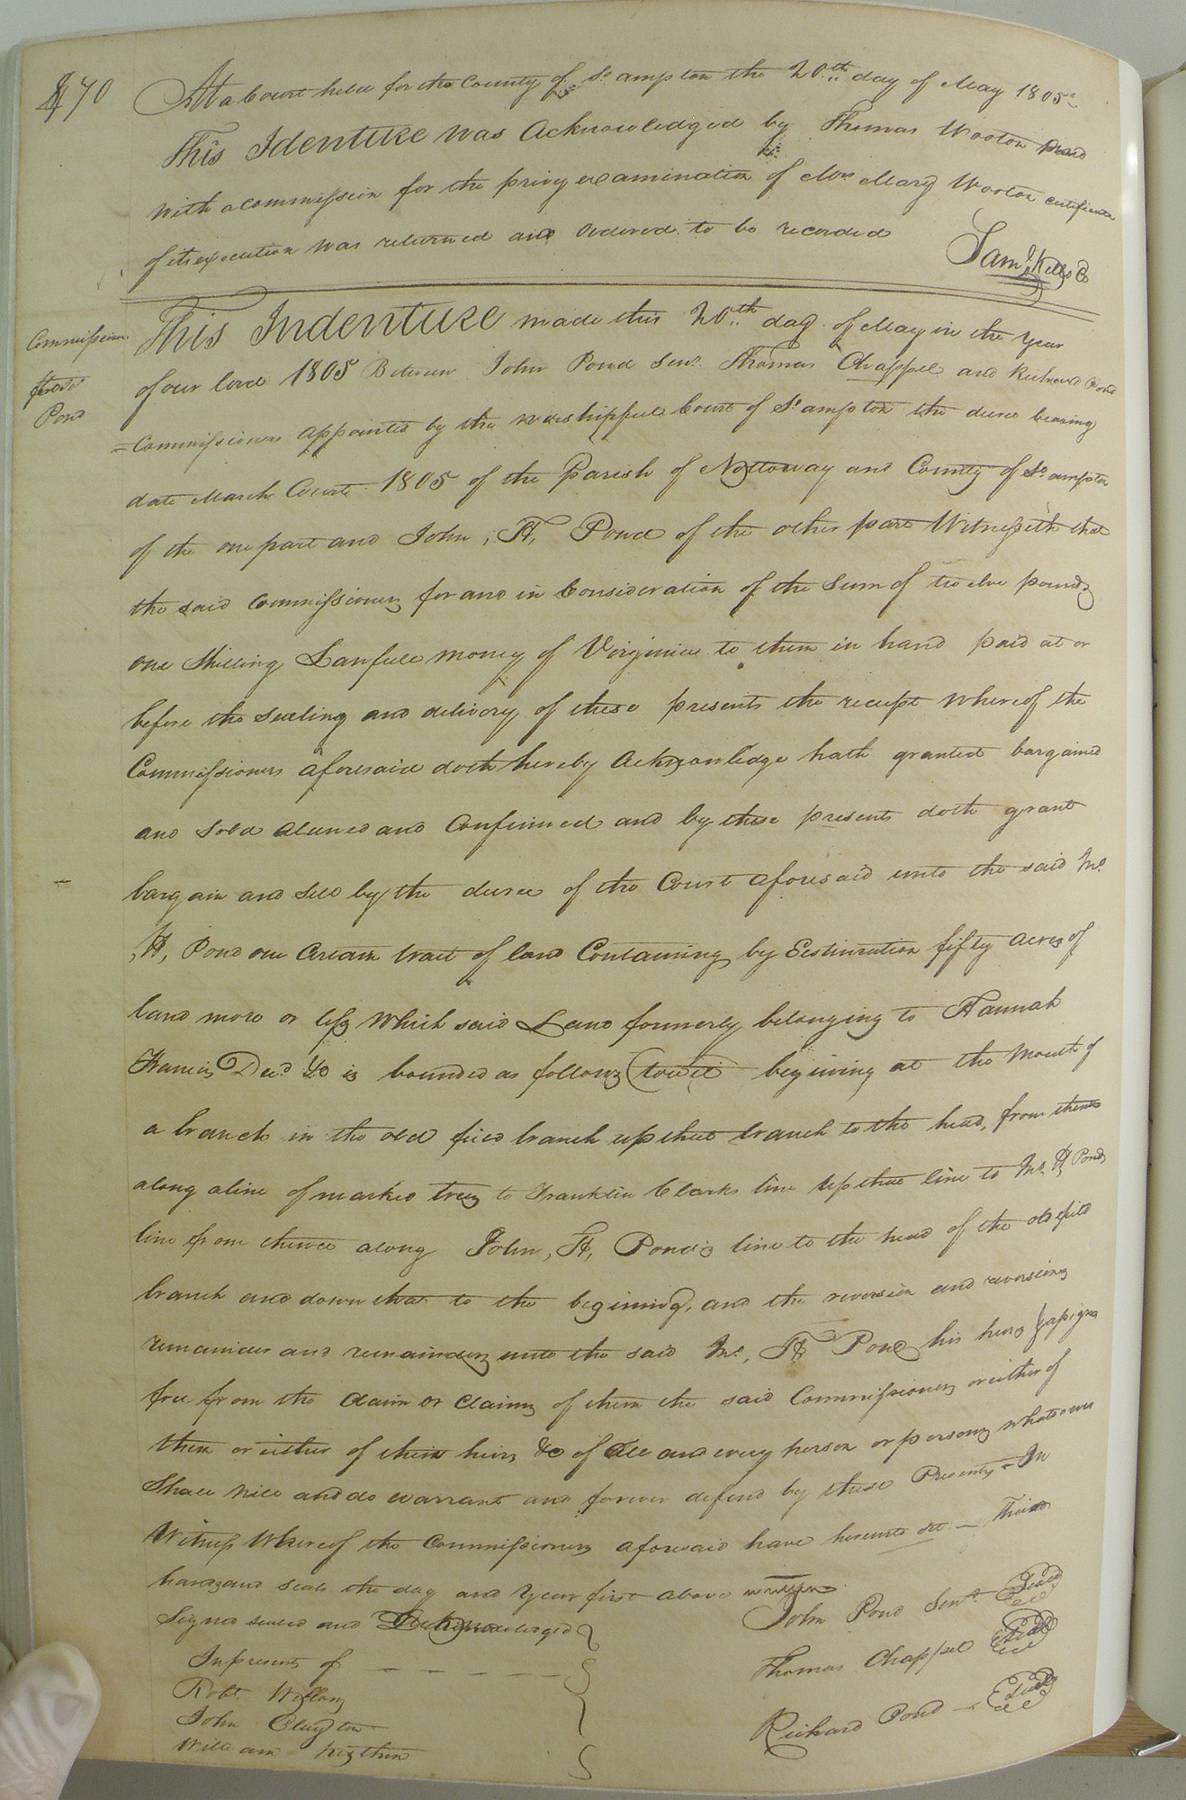 470
At a Court held for the County of So. ampton the 20th day of May 1805
This Identure was Acknowledged by Thomas Wooton
with a commission for the privy examination of Mrs Mary Wooton certificate
of its execution was returned and ordered to be recorded
Saml. Kello C
Commission
to
Pond
This Indenture made this 20th day of May in the Year
of our lord 1805 Between John Pond Senr. Thomas Chappel and Richard Pond
= Commissioners appointed by the worshipfull Court of So. ampton the decree bearing
date March Court 1805 of the Parish of Nottoway and County of So. ampton
of the one part and John, H, Pond of the other part Witnesseth that
the said Commissioners for and in Consideration of the Sum of twelve pounds
one Shilling Lawfull money of Virginia to them in hand paid at or
before the Sealing and delivery of these presents the receipt whereof the
Commissioners aforesaid doth hereby Acknowledge hath granted bargained
and Sold aliened and Confirmed and by these presents doth grant
bargain and Sell by the decree of the Court aforesaid unto the said Jno.
,H, Pond one Certain tract of land Containing by Eestimation fifty acres of
land more or less Which said Land formerly belonging to Hannah
Francis Decd. & is bounded as follows (towit) begining at the Mouth of
a branch in the old field branch up that branch to the head, from thence
along a line of marked trees to Franklin Clarks line up that line to Jno. H Ponds
line from thence along John, H, Pond's line to the head of the old field
branch and down that to the beginning, and the reversion and reversions
remainder and remainders unto the said Jno., H Pond his heirs & assigns
free from the Claim or Claims of them the said Commissioners or either of
them or either of their heirs &c of all and every person or persons whatsoever
Shall will and do warrant and forever defend by these Presents - In
Witness Whereof the Commissioners aforesaid have hereunto set - Their
hands and seals the day and Year first above written
Signed sealed and Acknowledged
In presents of - - - - - -
Robt. Wellons
John Clayton
William
John Pond Senr. Seal
Thomas Chappel Seal
Richard Pond - Seal